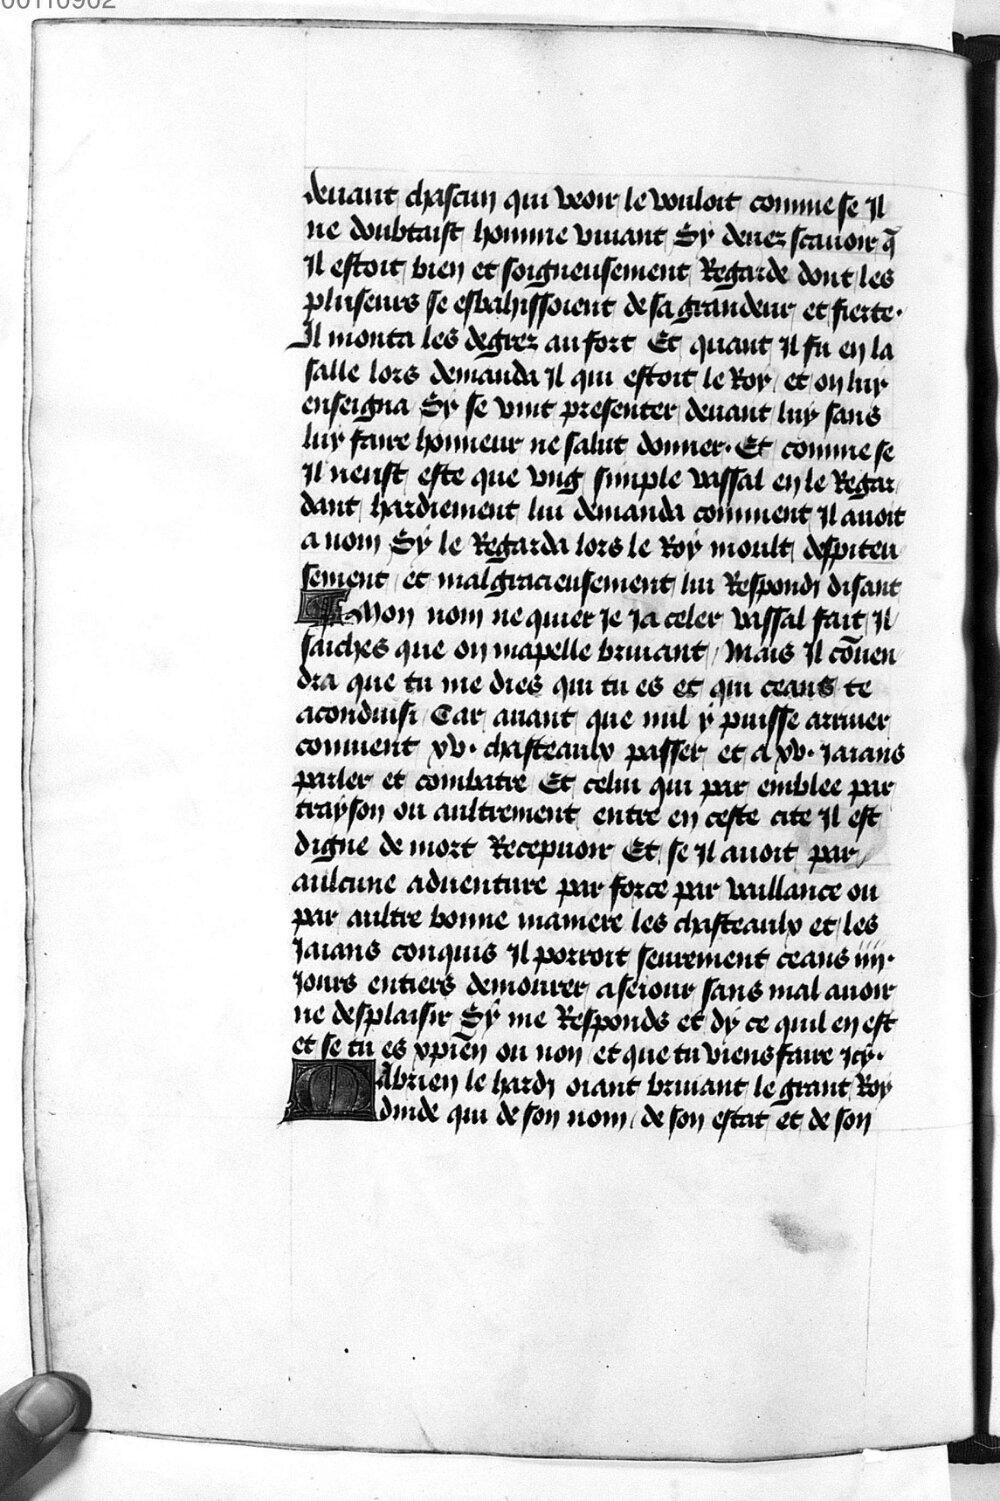 00110902
deuant chascun qui veoir le vouloit comme se Il
ne doubtaist homme viuant Sy deuez scauoir q̃
Il estoit bien et soigneusement Regarde dont les
pluseurs se esbahissoient de sa grandeur et fierte.
Il monta les degrez au fort Et quant Il fu en la
salle lors demanda Il qui estoit le Roy et on luy
enseigna Sy se vint presenter deuant luy sans
luy faire honneur ne salut donner. Et comme se
Il neust este que vng simple vassal en le Regar
dant hardiement lui demanda comment Il auoit
a nom Sy le Regarda lors le Roy moult despiteu
sement et malgracieusement lui Respondi disant
Mon nom ne quier Ie Ia celer vassal fait Il
saiches que on mapelle bruiant Mais Il cõuen
dra que tu me dies qui tu es et qui ceans te
aconduisi Car auant que nul y puisse arriuer
conuient xv. chasteaulx passer et a xv. Iaians
parler et combatre Et celui qui par emblee par
trayson ou aultrement entre en ceste cite Il est
digne de mort Recepuoir Et se Il auoit par
aulcune aduenture par force par vaillance ou
par aultre bonne maniere les chasteaulx et les
Iaians conquis Il porroit seurement ceans iiii.
Iours entiers demourer a seiour sans mal auoir
ne desplaisir Sy me Responds et dy ce quil en est
et se tu es xpiẽn ou non et que tu viens faire Icy.
Mabrien le hardi oiant bruiant le grant Roy
dinde qui de son nom de son estat et de son